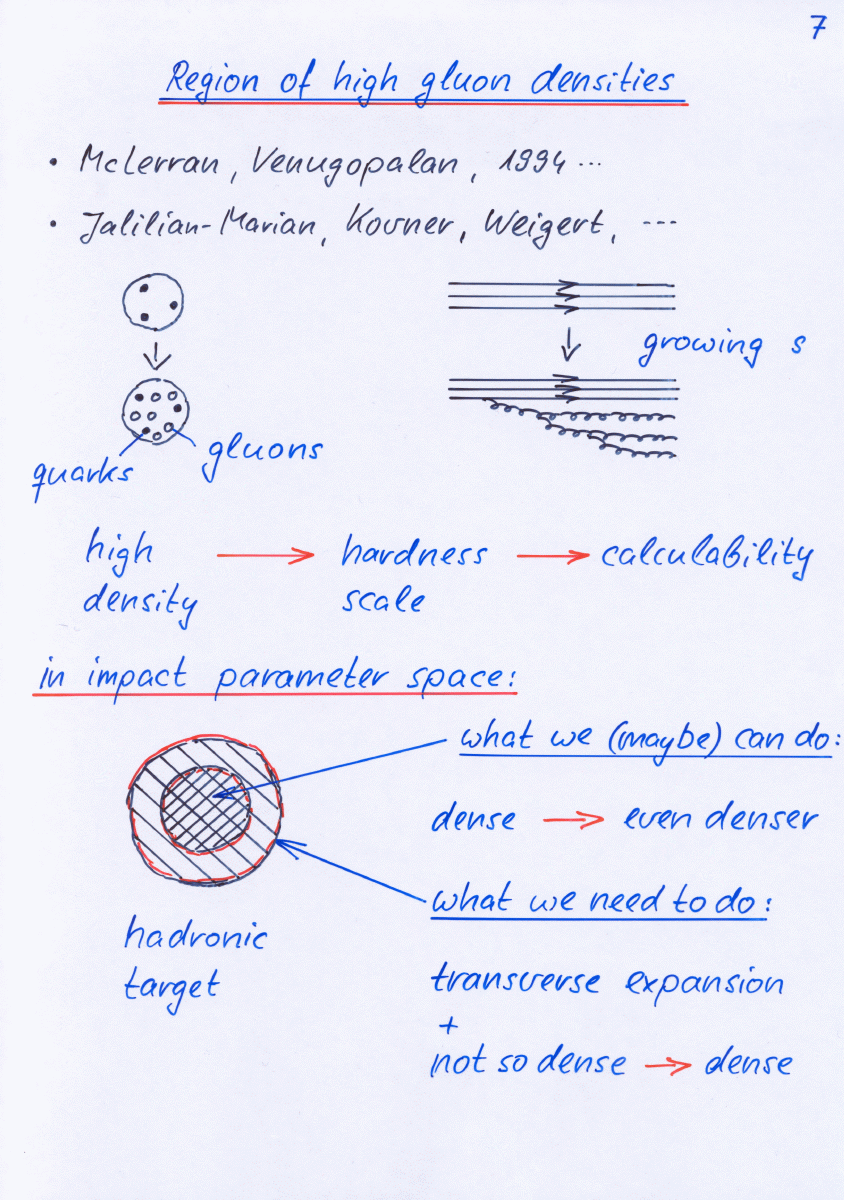 7
Region of high gluon densities
• McLerran, Venugopalan, 1994 ...
• Jalilian-Marian, Kovner, Weigert, ---
growing s
gluons
quarks
high → hardness → calculability
density scale
in impact parameter space:
what we (maybe) can do:
dense → even denser
what we need to do:
hadronic
target
transverse expansion
+
not so dense → dense